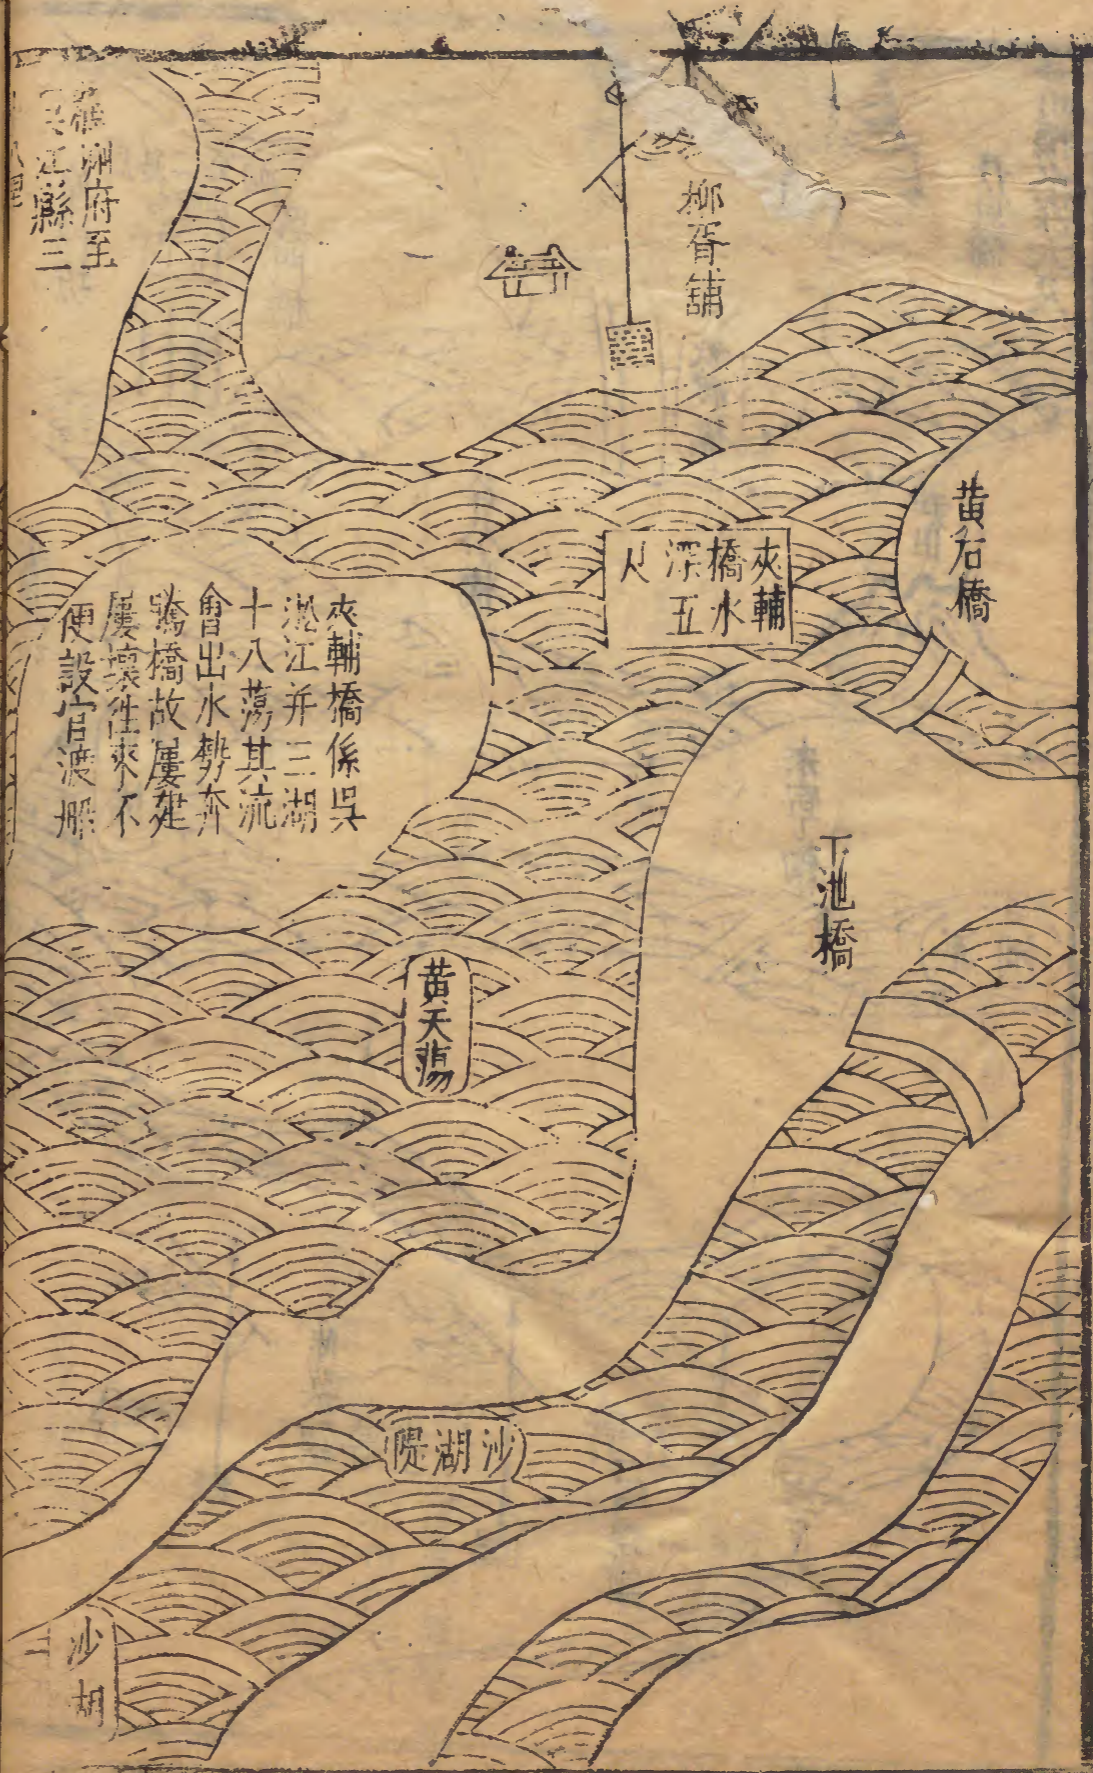 柳胥舖
黄石橋
夾輔
橋水
深五
尺
下池橋
夾輔橋係吳
淞江并三湖
十八蕩其流
會出水勢奔
騰橋故屢建
屢壞徃來不
便設官渡船
黄天蕩
蘇州府至
吳江縣三
沙湖隄
沙湖